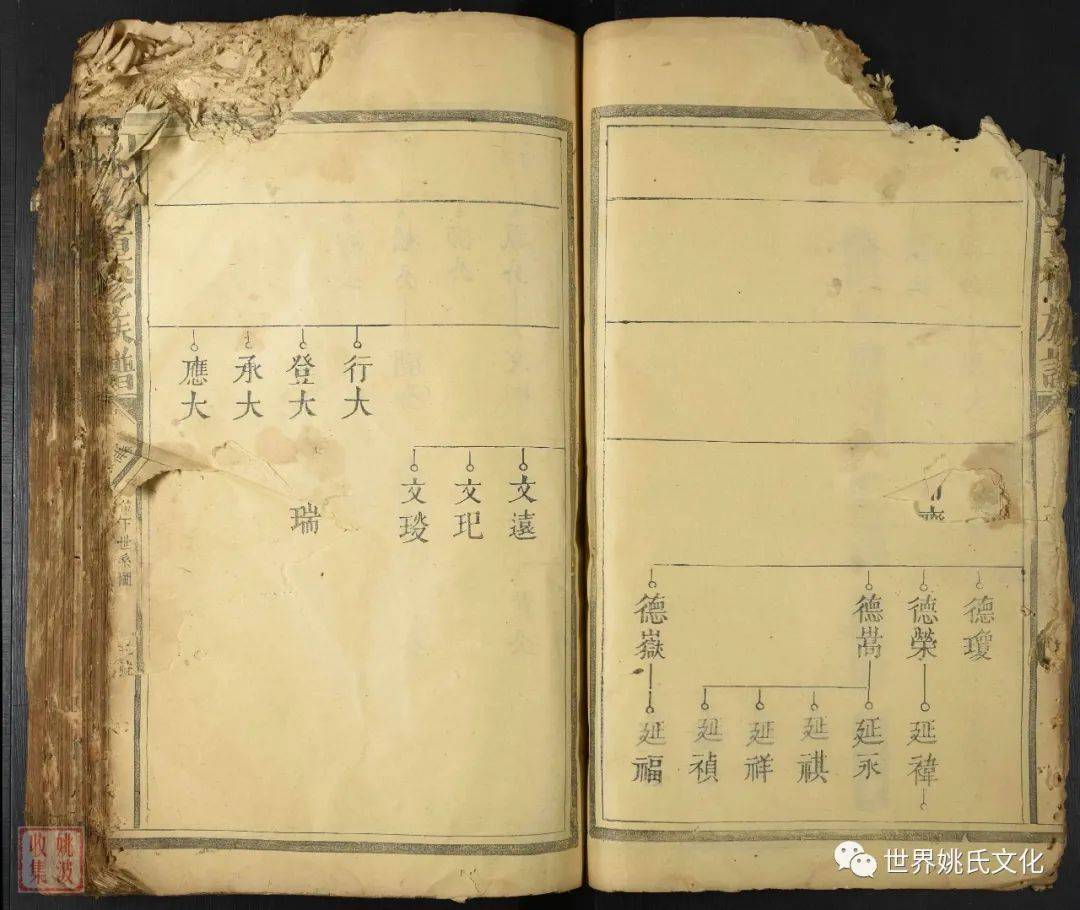 德瓊
德榮
德嵩
德嶽
延禕
延永
延祺
延祥
延禎
延福
族譜
行大
登大
承大
應大
文遠
文玘
文琰
瑞
重修族譜
下世系圖
姚波
收集
世界姚氏文化